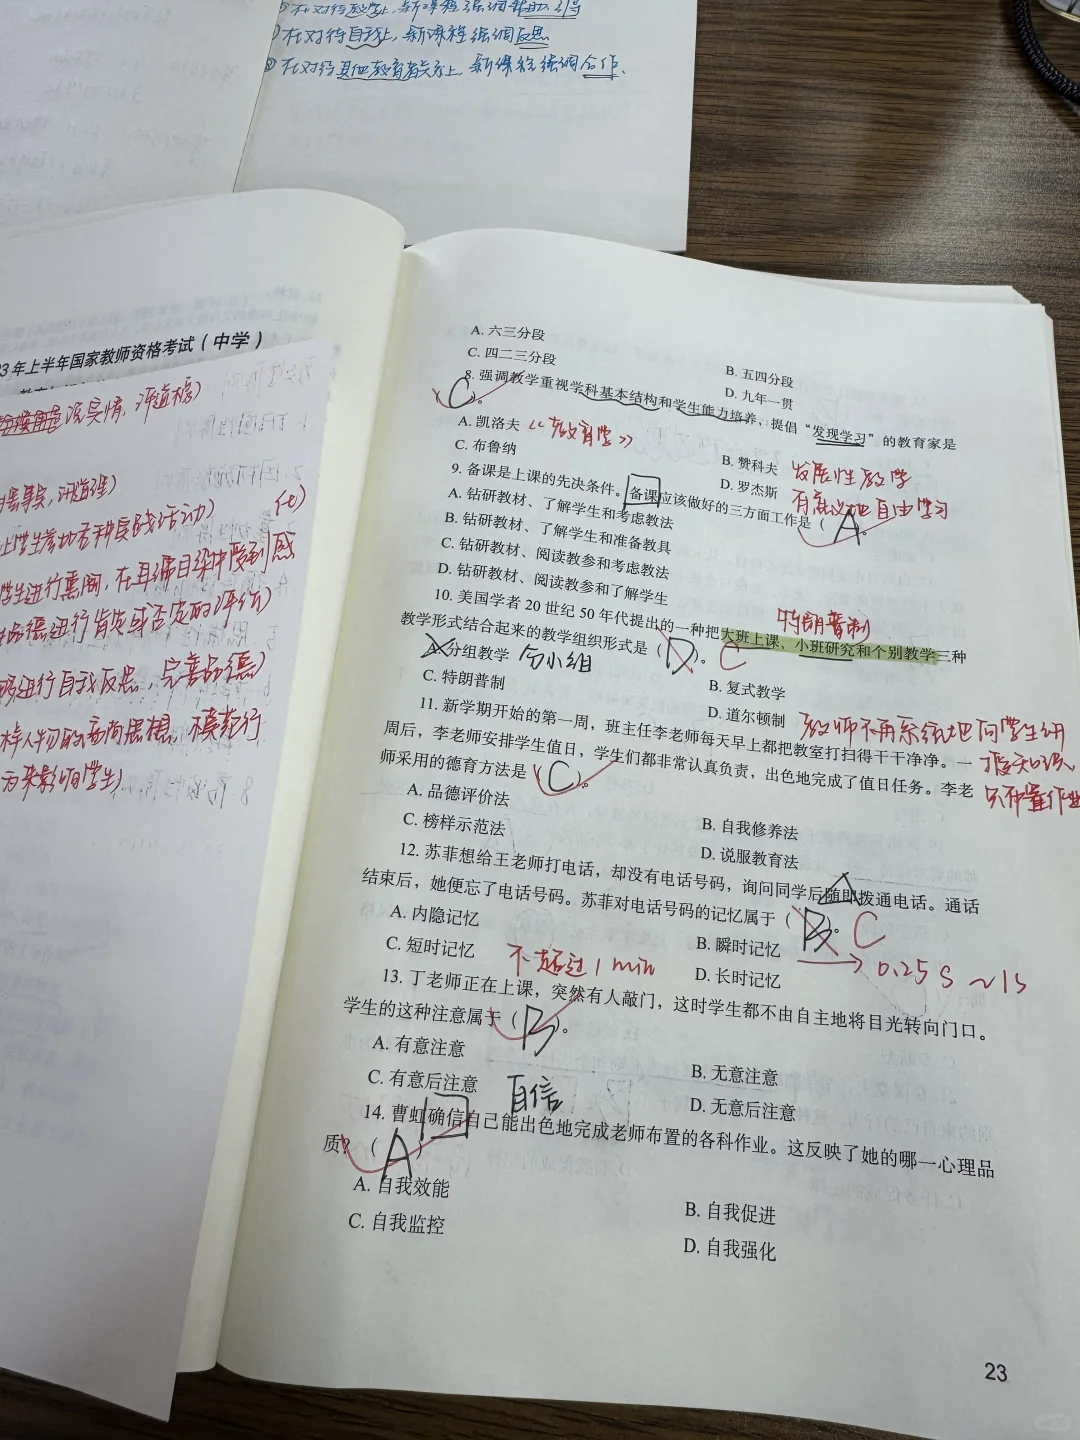 ②在对待教学上,新课程强调帮助、引导
③在对待自我上,新课程强调反思
④在对待其他教育者关系上,新课程强调合作.
3年上半年国家教师资格考试(中学)
说实情,评道德)
上学生参加各种实践活动)
学生进行熏陶,在耳濡目染中受到感
品德进行肯定或否定的评价)
够进行自我反思,完善品德)
为来影响学生)
A. 六三分段
B. 五四分段
C. 四二三分段
D. 九年一贯
8. 强调教学重视学科基本结构和学生能力培养,提倡“发现学习”的教育家是
(C)。
A. 凯洛夫《教育学》
B. 赞科夫 发展性教学
C. 布鲁纳
D. 罗杰斯 有意义地自由学习
9. 备课是上课的先决条件。备课应该做好的三方面工作是(A)。
A. 钻研教材、了解学生和考虑教法
B. 钻研教材、了解学生和准备教具
C. 钻研教材、阅读教参和考虑教法
D. 钻研教材、阅读教参和了解学生
特朗普制
10. 美国学者 20 世纪 50 年代提出的一种把大班上课、小班研究和个别教学三种
教学形式结合起来的教学组织形式是(D)。C
A. 分组教学 分小组
B. 复式教学
C. 特朗普制
D. 道尔顿制 教师不再系统地向学生讲
授知识,
只布置作业
11. 新学期开始的第一周,班主任李老师每天早上都把教室打扫得干干净净。一
周后,李老师安排学生值日,学生们都非常认真负责,出色地完成了值日任务。李老
师采用的德育方法是(C)。
A. 品德评价法
B. 自我修养法
C. 榜样示范法
D. 说服教育法
12. 苏菲想给王老师打电话,却没有电话号码,询问同学后随即拨通电话。通话
结束后,她便忘了电话号码。苏菲对电话号码的记忆属于(B)。C
A. 内隐记忆
B. 瞬时记忆 → 0.25s~1s
C. 短时记忆 不超过1min
D. 长时记忆
13. 丁老师正在上课,突然有人敲门,这时学生都不由自主地将目光转向门口。
学生的这种注意属于(B)。
A. 有意注意
B. 无意注意
C. 有意后注意
D. 无意后注意
自信
14. 曹虹确信自己能出色地完成老师布置的各科作业。这反映了她的哪一心理品
质?(A)
A. 自我效能
B. 自我促进
C. 自我监控
D. 自我强化
23